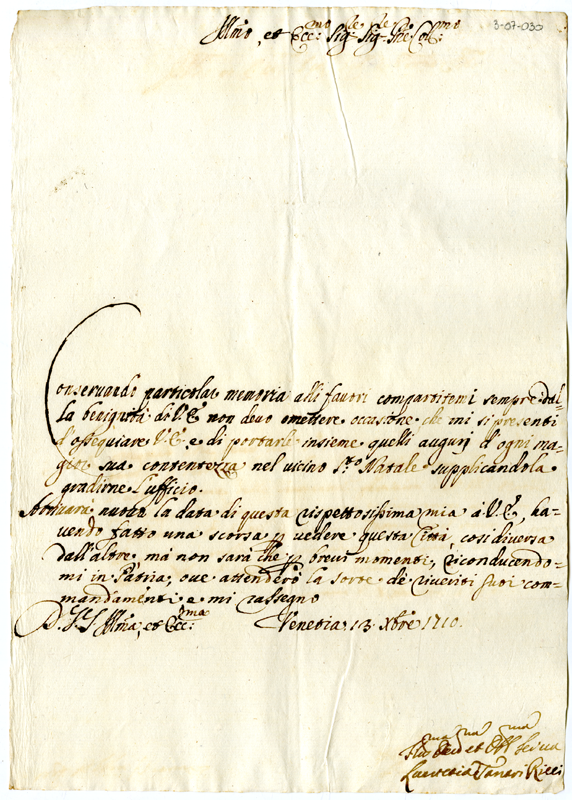 3-07-030
Illmo, et Ecc:mo Sig:le Sig:le Pne Col:mo
Conservando particolar memoria alli favori compartitomi sempre dal=
la benignità di V.E. non devo omettere occasione che mi si presenti
d'ossequiare V.E. e di portarle insieme quelli augurj d'ogni ma=
gior sua contentezza nel vicino S.to Natale supplicandola
gradirne l'ufficio.
Arrivarà nuova la data di questa rispettosissima mia à V.E., ha=
vendo fatto una scorsa p vedere questa Città, così diversa
dall'altre, mà non sarà che p brevi momenti, riconducendo=
mi in Patria, ove attenderò la sorte de riveriti suoi com=
mandamenti e mi rassegno
D.V.S. Illma, et Ecc:ma Venetia 13 Xbre 1710.
et Obb serva
Lucretia Tanari Ricci